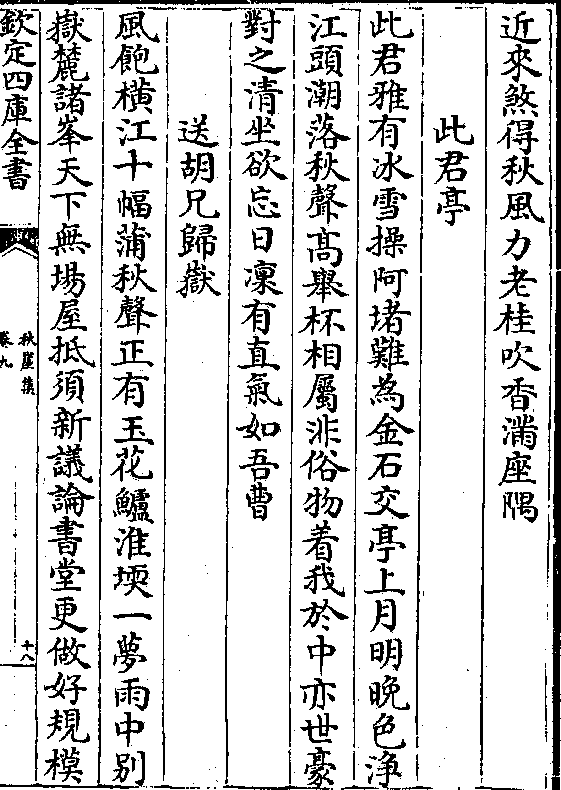 近來煞得秋風力老桂吹香滿座隅
此君亭
此君雅有冰雪操阿堵難為金石交亭上月明晚色淨
江頭潮落秋聲高舉杯相屬非俗物着我於中亦世豪
對之清坐欲忘日凜有直氣如吾曹
送胡兄歸嶽
風飽橫江十幅蒲秋聲正有玉花鱸淮壖一夢雨中别
嶽麓諸峯天下無場屋抵須新議論書堂更做好規模
欽定四庫全書
秋崖集
卷九
十八